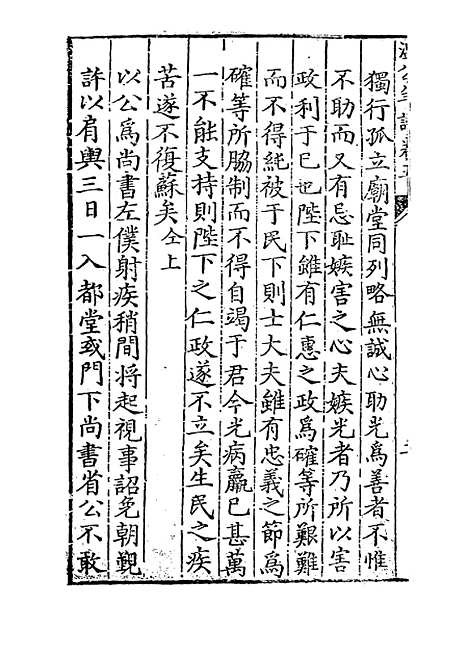 獨行孤立廟堂同列略無誠心助光爲善者不惟
不助而又有忌耻嫉害之心夫嫉光者乃所以害
政利于已也陛下雖有仁惠之政爲確等所艱難
而不得純被于民下則士大夫雖有忠義之節爲
確等所脇制而不得自竭于君今光病羸已甚萬
一不能支持則陛下之仁政遂不立矣生民之疾
苦遂不復蘇矣仝上
以公爲尚書左僕射疾稍間將起視事詔免朝覲
許以肩輿三日一入都堂或門下尚書省公不敢